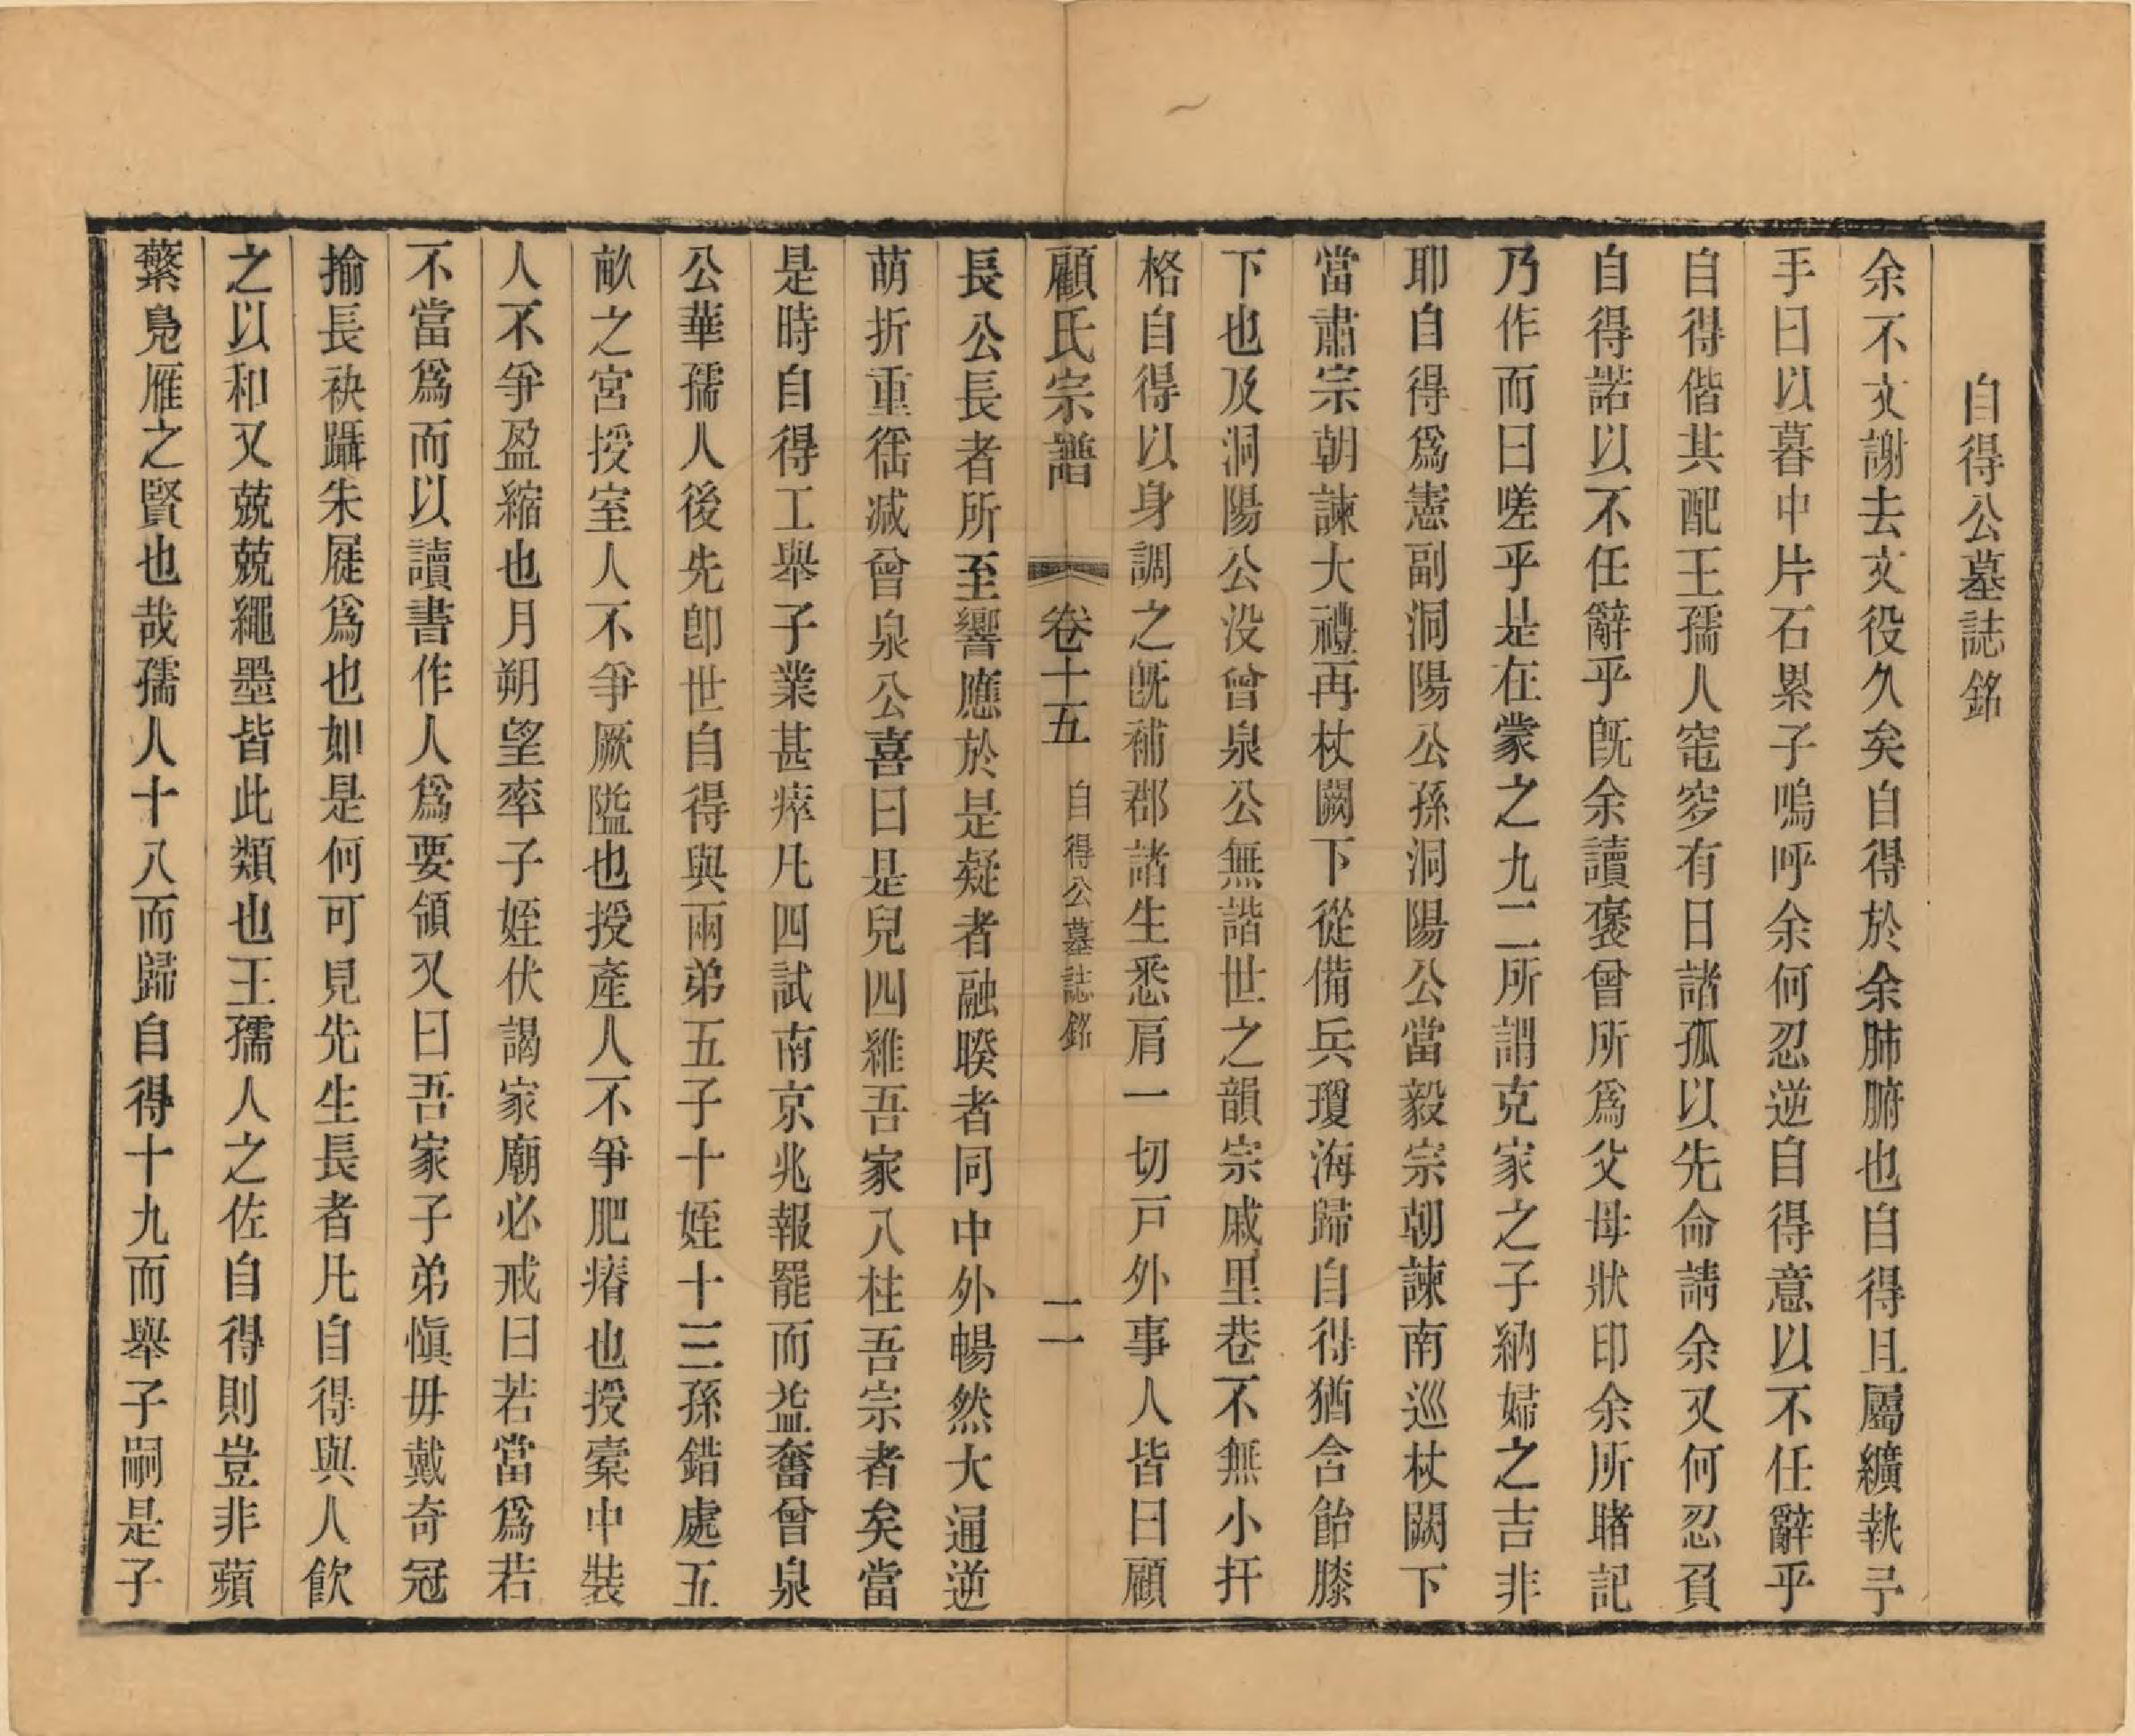 自得公墓誌銘
余不文謝去文役久矣自得於余肺腑也自得且屬纊執予
手曰以暮中片石累子嗚呼余何忍逆自得意以不任辭乎
自得偕其配王孺人窀穸有日諸孤以先命請余又何忍負
自得諾以不任辭乎旣余讀褒曾所爲父母狀印余所睹記
乃作而曰嗟乎是在蒙之九二所謂克家之子納婦之吉非
耶自得爲憲副洞陽公孫洞陽公當毅宗朝諫南巡杖闕下
當肅宗朝諫大禮再杖闕下從備兵瓊海歸自得猶含飴膝
下也及洞陽公没曾泉公無諧世之韻宗戚里巷不無小扞
格自得以身調之旣補郡諸生悉肩一切戸外事人皆曰顧
顧氏宗譜 卷十五 自得公墓誌銘 二
長公長者所至響應於是疑者融睽者同中外暢然大逋逆
萌折重徭减曾泉公喜曰是兒四維吾家八柱吾宗者矣當
是時自得工舉子業甚瘁凡四試南京兆報罷而益奮曾泉
公華孺人後先卽世自得與兩弟五子十姪十三孫錯處五
畝之宮授室人不爭厥隘也授產人不爭肥瘠也授橐中裝
人不爭盈縮也月朔望率子姪伏謁家廟必戒曰若當爲若
不當爲而以讀書作人爲要領又曰吾家子弟愼毋戴奇冠
揄長袂躡朱屣爲也如是何可見先生長者凡自得與人飲
之以和又兢兢繩墨皆此類也王孺人之佐自得則豈非蘋
蘩鳧雁之賢也哉孺人十八而歸自得十九而舉子嗣是子